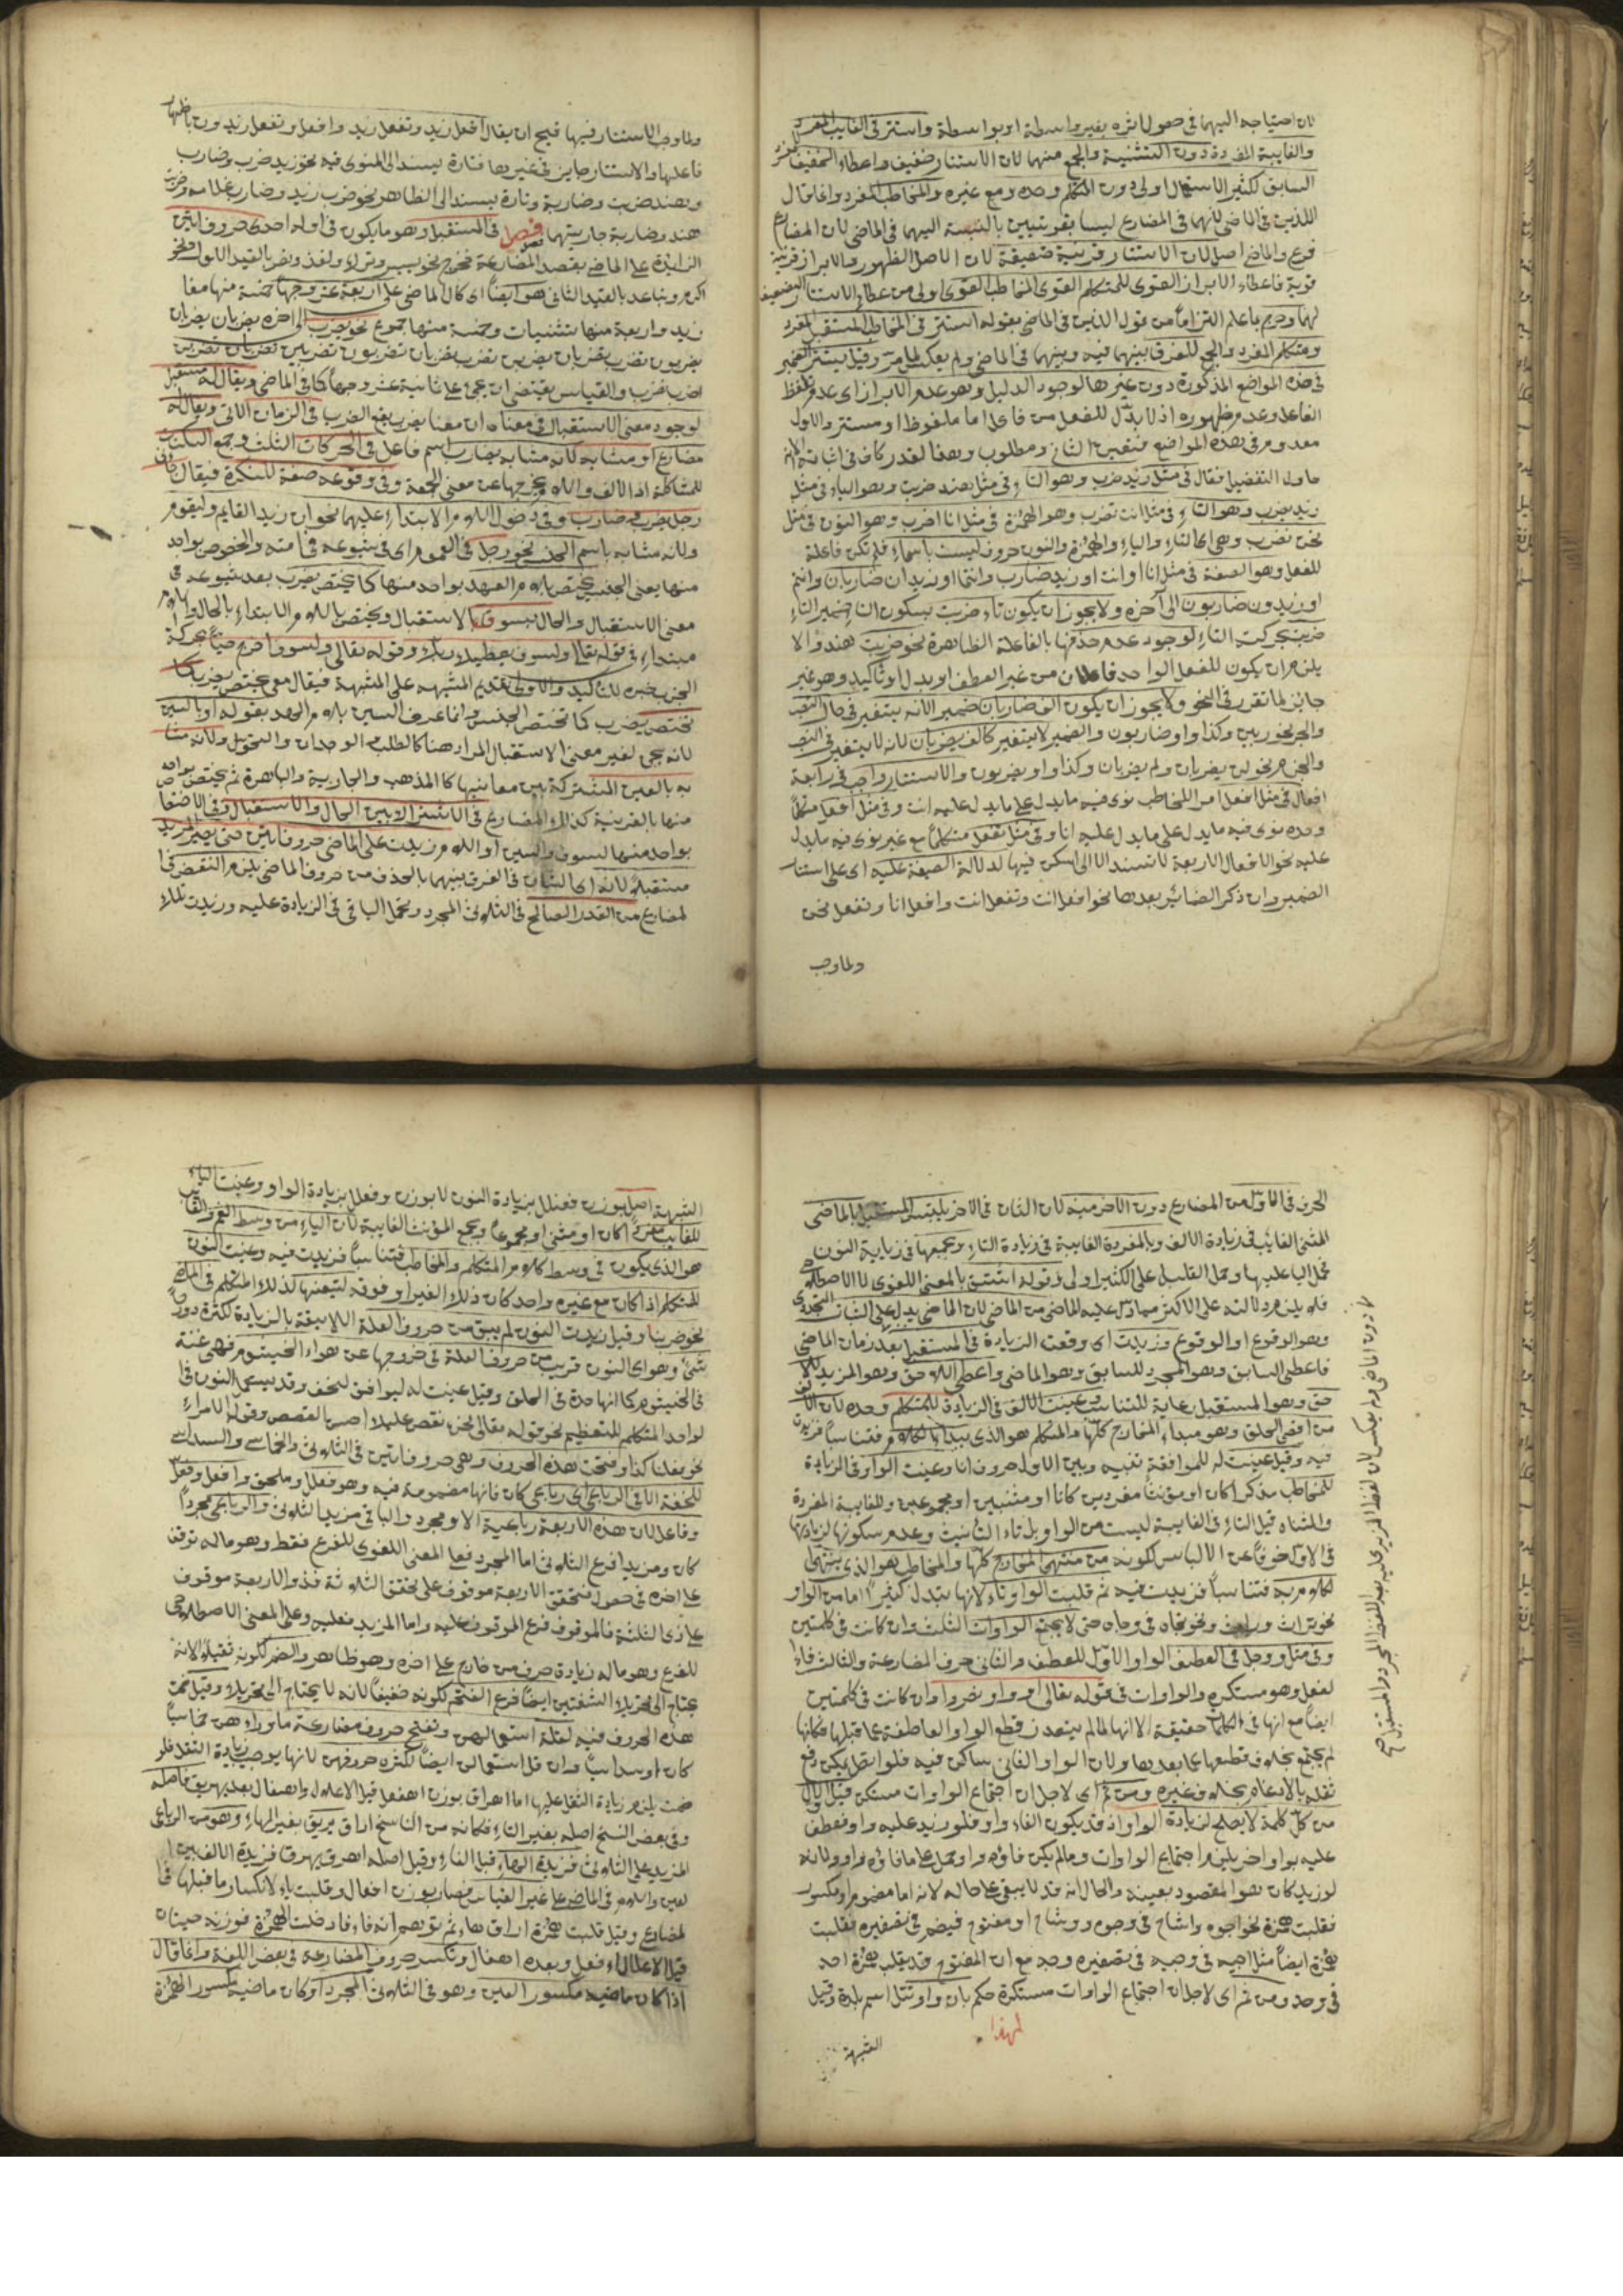 لان احتياجه اليهما في حصول اثره بغير واسطة او بواسطة واستتر في الغايب المفرد
والغايبة المفردة دون التثنية والجمع منهما لان الاستتار خفيف واعطاء الخفيف للمفرد
السابق الكثير الاستعمال اولى دون المتكلم وحده ومع غيره والمخاطب المفرد وانما قال
اللذين في الماضي لانهما في المضارع ليسا بقويتين بالنسبة اليهما في الماضي لان المضارع
فرع والماضي اصل لان الاستتار قرينة ضعيفة لان الاصل الظهور والابراز قرينة
قوية فاعطاء الابراز القوي للمتكلم القوي المخاطب القوي اولى من اعطاء الاستتار الضعيف
لهما وجرم ما علم التزاما من قوله الذين في الماضي بقوله استتر في المخاطب المستقبل المفرد
ومتكلم المفرد والجمع للفرق بينهما فيه وبينهما في الماضي ولم يعكس لما مر وقيل يستتر الضمير
في هذه المواضع المذكورة دون غيرها لوجود الدليل وهو عدم الابراز اي عدم تلفظ
الفاعل وعدم ظهوره اذ لا بد للفعل من فاعل اما ملفوظ او مستتر والاول
معدوم في هذه المواضع فتعين الثاني ومطلوب وهذا القدر كاف في اثباته
حاول التفصيل فقال في مثل زيد ضرب وهو التاء في مثل هند ضربت وهو الياء في مثل
زيد يضرب وهو التاء في مثل انت تضرب وهو الهمزة في مثل انا اضرب وهو النون في مثل
نحن نضرب وهي اي التاء والياء والهمزة والنون حروف ليست باسماء فلم تكن فاعلة
للفعل وهو الصفة في مثل انا او انت او زيد ضارب وانتما او زيدان ضاربان وانتم
او زيدون ضاربون الى آخره ولا يجوز ان يكون تاء ضربت بسكون التاء ضمير التاء
ضربت بحركت التاء لوجود عدم حذفها بالفاعلة الظاهرة نحو ضربت هند والا
يلزم ان يكون للفعل الواحد فاعلان من غير العطف او بدل او تاكيد وهو غير
جايز لما تقرر في النحو ولا يجوز ان يكون الف ضاربان ضمير لانه يتغير في حال النصب
والجر نحو ضاربين وكذا واو ضاربون والضمير لا يتغير كالف يضربان لانه لا يتغير في النصب
والجزم نحو لن يضربان ولم يضربان وكذا واو يضربون والاستتار واجب في رابعة
افعال في مثل افعل امر المخاطب نوى فيه ما يدل على ما يدل عليه انت وفي مثل افعل متكلما
وحده نوى فيه ما يدل على ما يدل عليه انا وفي مثل نفعل متكلما مع غير نوى فيه ما يدل
عليه نحن الافعال الاربعة لا تسند الا الى اسكن فيها لدلالة الصيغة عليه اي على استتار
الضمير وان ذكر الضمائر بعدها نحو افعل انت وتفعل انت وافعل انا ونفعل نحن
ولما وجب
ولما وجب الاستتار فيها قبح ان يقال افعل زيد وتفعل زيد وافعل وتفعل زيدون باظهار
فاعلها والاستتار جايز في غيرها فتارة يسند الى المنوي فيه نحو زيد ضرب وضارب
وهند ضربت وضاربة وتارة يسند الى الظاهر نحو ضرب زيد وضارب غلامه وضربت
هند وضاربة جاريتها فصل في المستقبل وهو ما يكون في اوله احدى حروف اتين
الزايدة على الماضي بقصد المضارعة فخرج نحو يسر وترك ونفذ ونصر بالقيد الاول ونحو
اكرم وتباعد بالقيد الثاني هو ايضا اي كالماضي على اربعة عشر وجها خمسة منها مفا
زيد واربعة منها تثنيات وخمسة منها جموع نحو يضرب الى اخره يضربان يضربان
يضربون تضرب تضربان يضربن تضرب تضربان تضربون تضربين تضربان تضربن
اضرب نضرب والقياس يقتضي ان يجئ على ثمانية عشر وجها كما في الماضي ويقال له مستقبل
لوجود معنى الاستقبال في معناه ان معنا يضرب يقع الضرب في الزمان الاتي ويقال له
مضارع او مشابه لانه مشابه يضارب اسم فاعل في الحركات الثلث وجمع السكنات
رجل يضرب في ضارب وفي دخول اللام الابتداء عليهما نحو ان زيدا لقايم وليقوم
ولانه مشابه باسم الجنس نحو رجل في العموم اي في شيوعه في امته والخصوص بواحد
منها يعني الجنس يختص بلام العهد بواحد منها كما يختص يضرب بعد شيوعه في
معنى الاستقبال والحال بسوف الاستقبال ويختص باللام الابتداء بالحال
مبتداء في قوله تعالى ولسوف يعطيك ربك وقوله تعالى ولسوف اخرج حيا
تختص يضرب كما تختص الجنس وانما عرف السين بلام العهد بقوله او بالسين
لانه يجئ لغير معنى الاستقبال المراد هنا كالطلب والوجدان والتحويل ولانه مشا
به بالعين المشتركة بين معانيها كالذهب والجارية والباصرة ثم يختص بواحد
منها بالقرينة كذلك المضارع في الاشتراك بين الحال والاستقبال وفي الاختصا
بواحد منها لسوف والسين او اللام زيدت على الماضي حروف اتين حتى يصير المزيد
مستقبلا لانه اي الشان في الفرق بينهما بالحذف من حروف الماضي يلزم النقض في ا
لمضارع من القدر الصالح في الثلاثي المجرد ويحمل الباقي في الزيادة عليه وزيدت تلك
الحرف في الاول من المضارع دون الاخر منه لان الثان في الاخر يلتبس المستقبل بالماضي
المثنى الغائب في زيادة الالف وبالمفردة الغايبة في زيادة التاء وبجمعها في زيادة النون
فحمل اليا عليها وحمل القليل على الكثير اولى وقوله اشتق بالمعنى اللغوي لا الاصطلاحي
فلا يلزم دلالته على الاكثر مما دل عليه الماضي من الماضي لان الماضي يدل على الثبات
وهو الوقوع او الوقوع وزيدت اي وقعت الزيادة في المستقبل بعد زمان الماضي
فاعطى السابق وهو المجرد للسابق وهو الماضي واعطى اللاحق وهو المزيد للا
حق وهو المستقبل رعاية للتناسب وعينت الالف في الزيادة للمتكلم وحده لان الالف
من اقصى الحلق وهو مبداء المخارج كلها والمتكلم هو الذي يبدأ بالكلام فتناسبا فزيدت
فيه وقيل عينت له للموافقة بينه وبين الاول حروف انا وعينت الواو في الزيادة
للمخاطب مذكرا كان او مؤنثا مفردين كانا او مثنيين او مجموعين وللغايبة المفردة
والمثناه قيل التاء في الغايبة ليست من الواو بل تاء التأنيث وعدم سكونها لزيادتها
في الاول خوفا عن الالباس لكونه من منتهى المخارج كلها والمخاطب هو الذي ينتهي ا
لكلام به فتناسبا فزيدت فيه ثم قلبت الواو تاء لانها تبدل كثيرا اما من الواو
نحو تراث وراث ونحو تجاه في وجاه حتى لا يجتمع الواوات الثلث وان كانت في كلمتين
وفي مثل ووجل في العطف الواو الاول للعطف والثاني حرف المضارعة والثالث فاء ا
لفعل وهو مستكره والواوات في قوله تعالى اووا ونصروا وان كانت في كلمتين
ايضا مع انها في الكلمات حقيقة الا انها لما لم يتعذر قطع الواو العاطفة عما قبلها فكانها
لم يجتمع بخلاف قطعها عما بعدها ولان الواو الثاني ساكن فيه فلو اتصل يكن رفع
ثقله بالادغام بخلاف غيره ومن ثم اي لاجل ان اجتماع الواوات مستكره قيل الاول
من كل كلمة لا يصلح لزيادة الواو اذ قد يكون الفاء واو فلو زيد عليه واو فعطف
عليه بواو اخر يلزم اجتماع الواوات وما لم يكن فاؤه واو حمل على ما فاؤه واو ولانه
لو زيد كان هو المقصود بعينه والحال انه قد لا يبقى على حاله لانه اما مضموم او مكسور
فقلبت همزة نحو اجوه واشاح في وجوه ووشاح او مفتوح فيضم في تصغيره فقلبت
همزة ايضا مثل اجيه في وجيه في تصغيره وجه مع ان المفتوح قد يقلب همزة احد
في وحد ومن ثم اي لاجل ان اجتماع الواوات مستكرة حكم بان واو ورنتل اسم بلدة وقيل
لهذا
الشبهة
الشبهة اصل بوزن فعنلل بزيادة النون لا بوزن وفعلل بزيادة الواو وعينت الياء
للغايب مفردا كان او مثنى او مجموعا وجمع المؤنث الغايبة لان الياء من وسط الفم والغايب
هو الذي يكون في وسط كلام المتكلم والمخاطب فتناسبا فزيدت فيه وعينت النون
للمتكلم اذا كان مع غيره واحد كان ذلك الغير او فوقه لتعينها لذلك المتكلم في الماضي
نحو ضربنا وقيل زيدت النون لم يبق من حروف العلة اللايقة بالزيادة لكثرة دور
شئ وهو اي النون قريب من حروف العلة في خروجها عن هواء الخيشوم فهي غنة
في الخيشوم كما انها مدة في الحلق وقيل عينت له ليوافق لنحن وقد يستعمل النون في ا
لواحد المتكلم للتعظيم نحو قوله تعالى نحن نقص عليك احسن القصص وقول الامراء
نحو نفعل كذا وفتحت هذه الحروف وهي حروف اتين في الثلاثي والخماسي والسداسي
للخفة الا في الرباعي اي رباعي كان فانها مضمومة فيه وهو فعلل وملحق وافعل وفعل
وفاعل لان هذه الاربعة رباعية الا ومجرد والباقي مزيد الثلاثي والرباعي مجردا
كان او مزيدا فرع الثلاثي اما المجرد فعلى المعنى اللغوي للفرع فقط وهو ماله توقف
على اخره في حصول فتحقق الاربعة موقوف على تحقق الثلاثة فذو الاربعة موقوف
على ذي الثلثة فالموقوف فرع الموقوف عليه واما المزيد فعليه وعلى المعنى الاصطلاحي
للفرع وهو ماله زيادة حرف من خارج على اخره وهو ظاهر والضم لكونه ثقيلا لانه
يحتاج الى تحريك الشفتين ايضا فرع الفتح لكونه خفيفا لانه لا يحتاج الى تحريك وقيل ضمت
هذه الحروف فيه لقلة استعمالهن وتفتح حروف مضارعة ماوراءهن خماسيا
كان او سداسيا وان قل استعمالن ايضا لكثره حروفهن لانها يوجب زيادة الثقل فلو
ضمت يلزم زيادة الثقل عليها اما اهراق بوزن اهفعل قبل الاعلال
وفي بعض النسخ اصله بغير التاء فكانه من الناسخ اراق يريق بغير الهاء وهو من الرباعي
المزيد على الثلاثي فزيدت الهاء قبل الفاء وقيل اصله اهرق يهرق فزيدة الالف بين ا
لعين واللام في الماضي على غير القياس فصار بوزن اهفعال وقلبت ياء لانكسار ما قبلها في ا
لمضارع وقيل قلبت همزة اراق هاء ثم توهم انه فاء فادخلت الهمزة فوزنه حينان
قبل الاعلال افعل وبعده اهفال وتكسر حروف المضارعة في بعض اللغة وانما قال
اذا كان ماضيه مكسور العين وهو في الثلاثي المجرد او كان ماضيه مكسور الهمزة